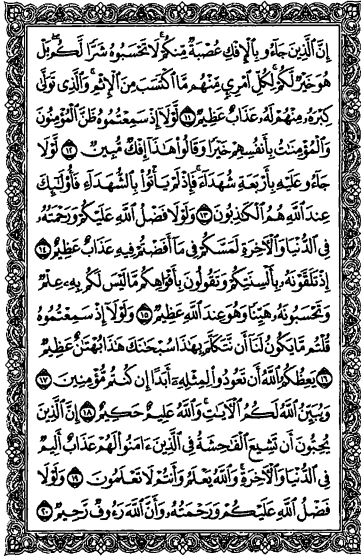 إِنَّ ٱلَّذِينَ جَآءُو بِٱلۡإِفۡكِ عُصۡبَةٌ مِّنكُمۡۚ لَا تَحۡسَبُوهُ شَرًّا لَّكُمۖ بَلۡ
هُوَ خَيۡرٌ لَّكُمۡۚ لِكُلِّ ٱمۡرِيٍٕ مِّنۡهُم مَّا ٱكۡتَسَبَ مِنَ ٱلۡإِثۡمِۚ وَٱلَّذِي تَوَلَّىٰ
كِبۡرَهُۥ مِنۡهُمۡ لَهُۥ عَذَابٌ عَظِيمٌ ١١ لَّوۡلَآ إِذۡ سَمِعۡتُمُوهُ ظَنَّ ٱلۡمُؤۡمِنُونَ
وَٱلۡمُؤۡمِنَٰتُ بِأَنفُسِهِمۡ خَيۡرًا وَقَالُوا۟ هَٰذَآ إِفۡكٌ مُّبِينٌ ١٢ لَّوۡلَا
جَآءُو عَلَيۡهِ بِأَرۡبَعَةِ شُهَدَآءَۚ فَإِذۡ لَمۡ يَأۡتُوا۟ بِٱلشُّهَدَآءِ فَأُو۟لَٰٓئِكَ
عِندَ ٱللَّهِ هُمُ ٱلۡكَٰذِبُونَ ١٣ وَلَوۡلَا فَضۡلُ ٱللَّهِ عَلَيۡكُمۡ وَرَحۡمَتُهُۥ
فِي ٱلدُّنۡيَا وَٱلۡأٓخِرَةِ لَمَسَّكُمۡ فِي مَآ أَفَضۡتُمۡ فِيهِ عَذَابٌ عَظِيمٌ ١٤
إِذۡ تَلَقَّوۡنَهُۥ بِأَلۡسِنَتِكُمۡ وَتَقُولُونَ بِأَفۡوَاهِكُم مَّا لَيۡسَ لَكُم بِهِۦ عِلۡمٌ
وَتَحۡسَبُونَهُۥ هَيِّنًا وَهُوَ عِندَ ٱللَّهِ عَظِيمٌ ١٥ وَلَوۡلَآ إِذۡ سَمِعۡتُمُوهُ
قُلۡتُم مَّا يَكُونُ لَنَآ أَن نَّتَكَلَّمَ بِهَٰذَا سُبۡحَٰنَكَ هَٰذَا بُهۡتَٰنٌ عَظِيمٌ
١٦ يَعِظُكُمُ ٱللَّهُ أَن تَعُودُوا۟ لِمِثۡلِهِۦٓ أَبَدًا إِن كُنتُم مُّؤۡمِنِينَ ١٧
وَيُبَيِّنُ ٱللَّهُ لَكُمُ ٱلۡأٓيَٰتِۚ وَٱللَّهُ عَلِيمٌ حَكِيمٌ ١٨ إِنَّ ٱلَّذِينَ
يُحِبُّونَ أَن تَشِيعَ ٱلۡفَٰحِشَةُ فِي ٱلَّذِينَ ءَامَنُوا۟ لَهُمۡ عَذَابٌ أَلِيمٌ
فِي ٱلدُّنۡيَا وَٱلۡأٓخِرَةِۚ وَٱللَّهُ يَعۡلَمُ وَأَنتُمۡ لَا تَعۡلَمُونَ ١٩ وَلَوۡلَا
فَضۡلُ ٱللَّهِ عَلَيۡكُمۡ وَرَحۡمَتُهُۥ وَأَنَّ ٱللَّهَ رَءُوفٌ رَّحِيمٌ ٢٠